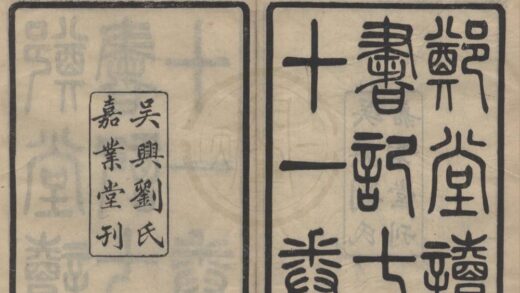 鄭堂讀
書記七
十一卷
吳興劉氏
嘉業堂刊